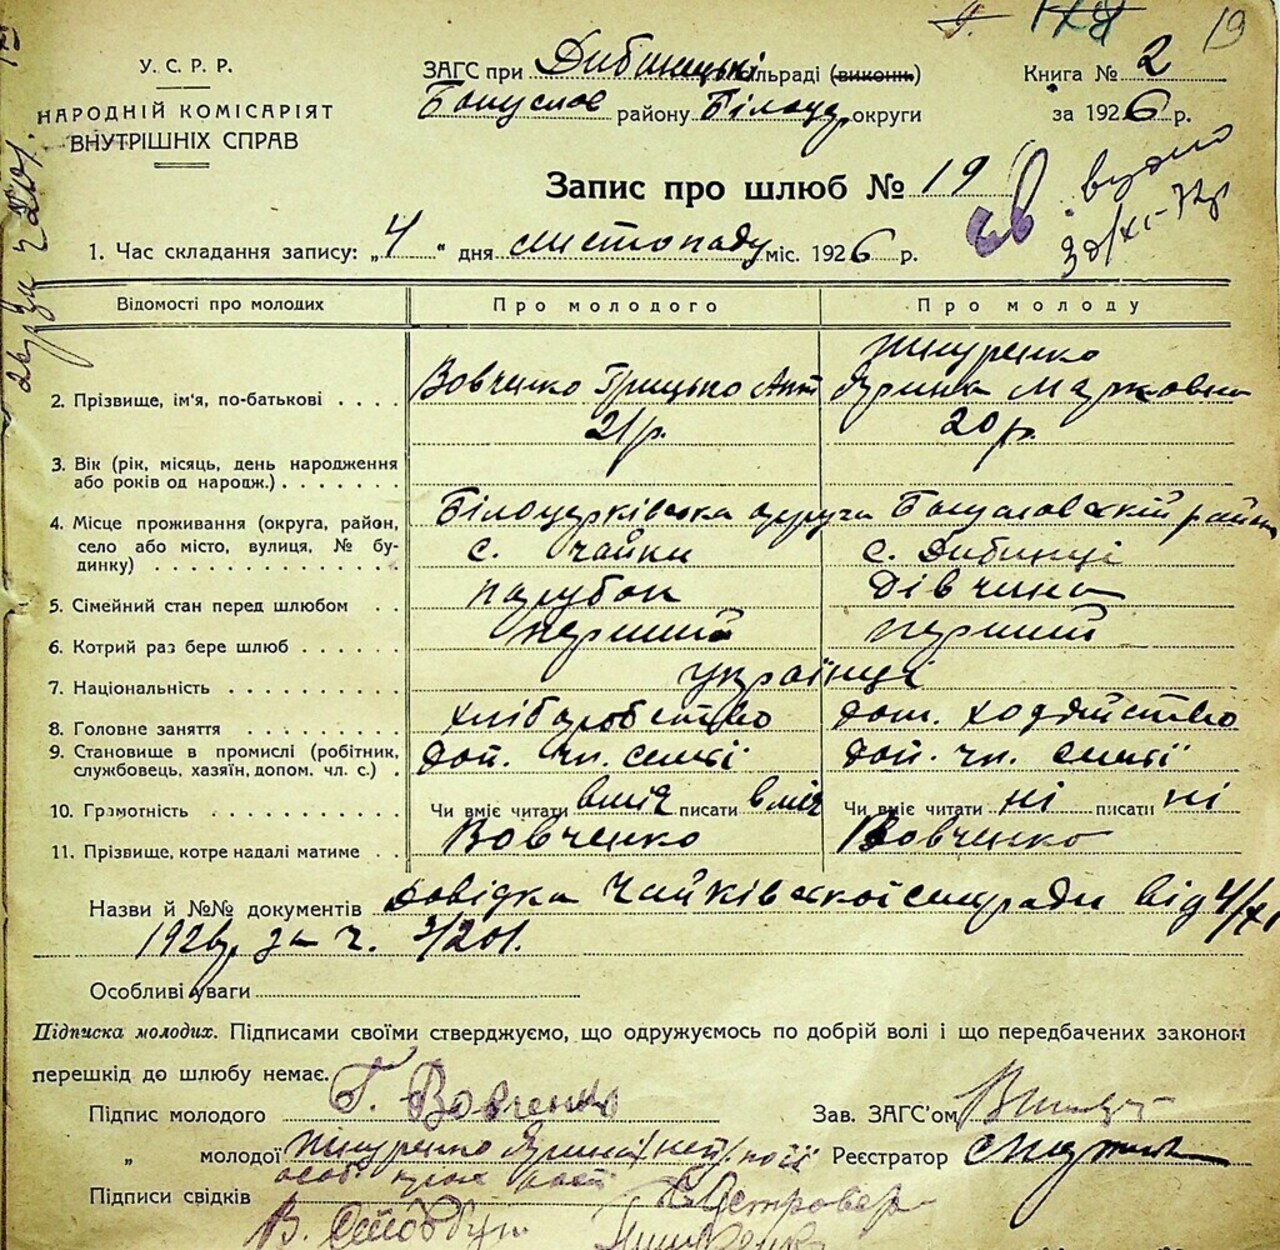 19
У. С. Р. Р.
НАРОДНІЙ КОМІСАРІЯТ
ВНУТРІШНІХ СПРАВ
ЗАГС при Дибинецькі сільраді (виконк.)
Богуслав району Білоцер. округи
Книга № 2
за 1926 р.
Запис про шлюб № 19
1. Час складання запису: „4" дня листопаду міс. 1926 р.
Відомості про молодих Про молодого Про молоду
2. Прізвище, ім'я, по-батькові . . . . Вовченко Грицько Ант
Марковна
3. Вік (рік, місяць, день народження
або років од народж.) . . . . . . . 21 р. 20 р.
4. Місце проживання (округа, район,
село або місто, вулиця, № бу-
динку) . . . . . . . . . . . . . Білоцерківська округа Богуславский район
с. Чайки с. Дибинці
5. Сімейний стан перед шлюбом . . парубок дівчина
6. Котрий раз бере шлюб . . . . . . перший перший
7. Національність . . . . . . . . . . українці
8. Головне заняття . . . . . . . . . хліборобство дом. ходяйство
9. Становище в промислі (робітник,
службовець, хазяїн, допом. чл. с.) . доп. чл. семьї доп. чл. семьї
10. Грамотність . . . . . . . . . . . Чи вміє читати вміє писати вміє Чи вміє читати ні писати ні
11. Прізвище, котре надалі матиме . . Вовченко Вовченко
Назви й №№ документів довідка Чайківскої сільради від 4/XI
1926 р. за ч. 3/201.
Особливі уваги
Підписка молодих. Підписами своїми стверджуємо, що одружуємось по добрій волі і що передбачених законом
перешкід до шлюбу немає.
Підпис молодого Г. Вовченко Зав. ЗАГС'ом
„ молодої Реєстратор
Підписи свідків